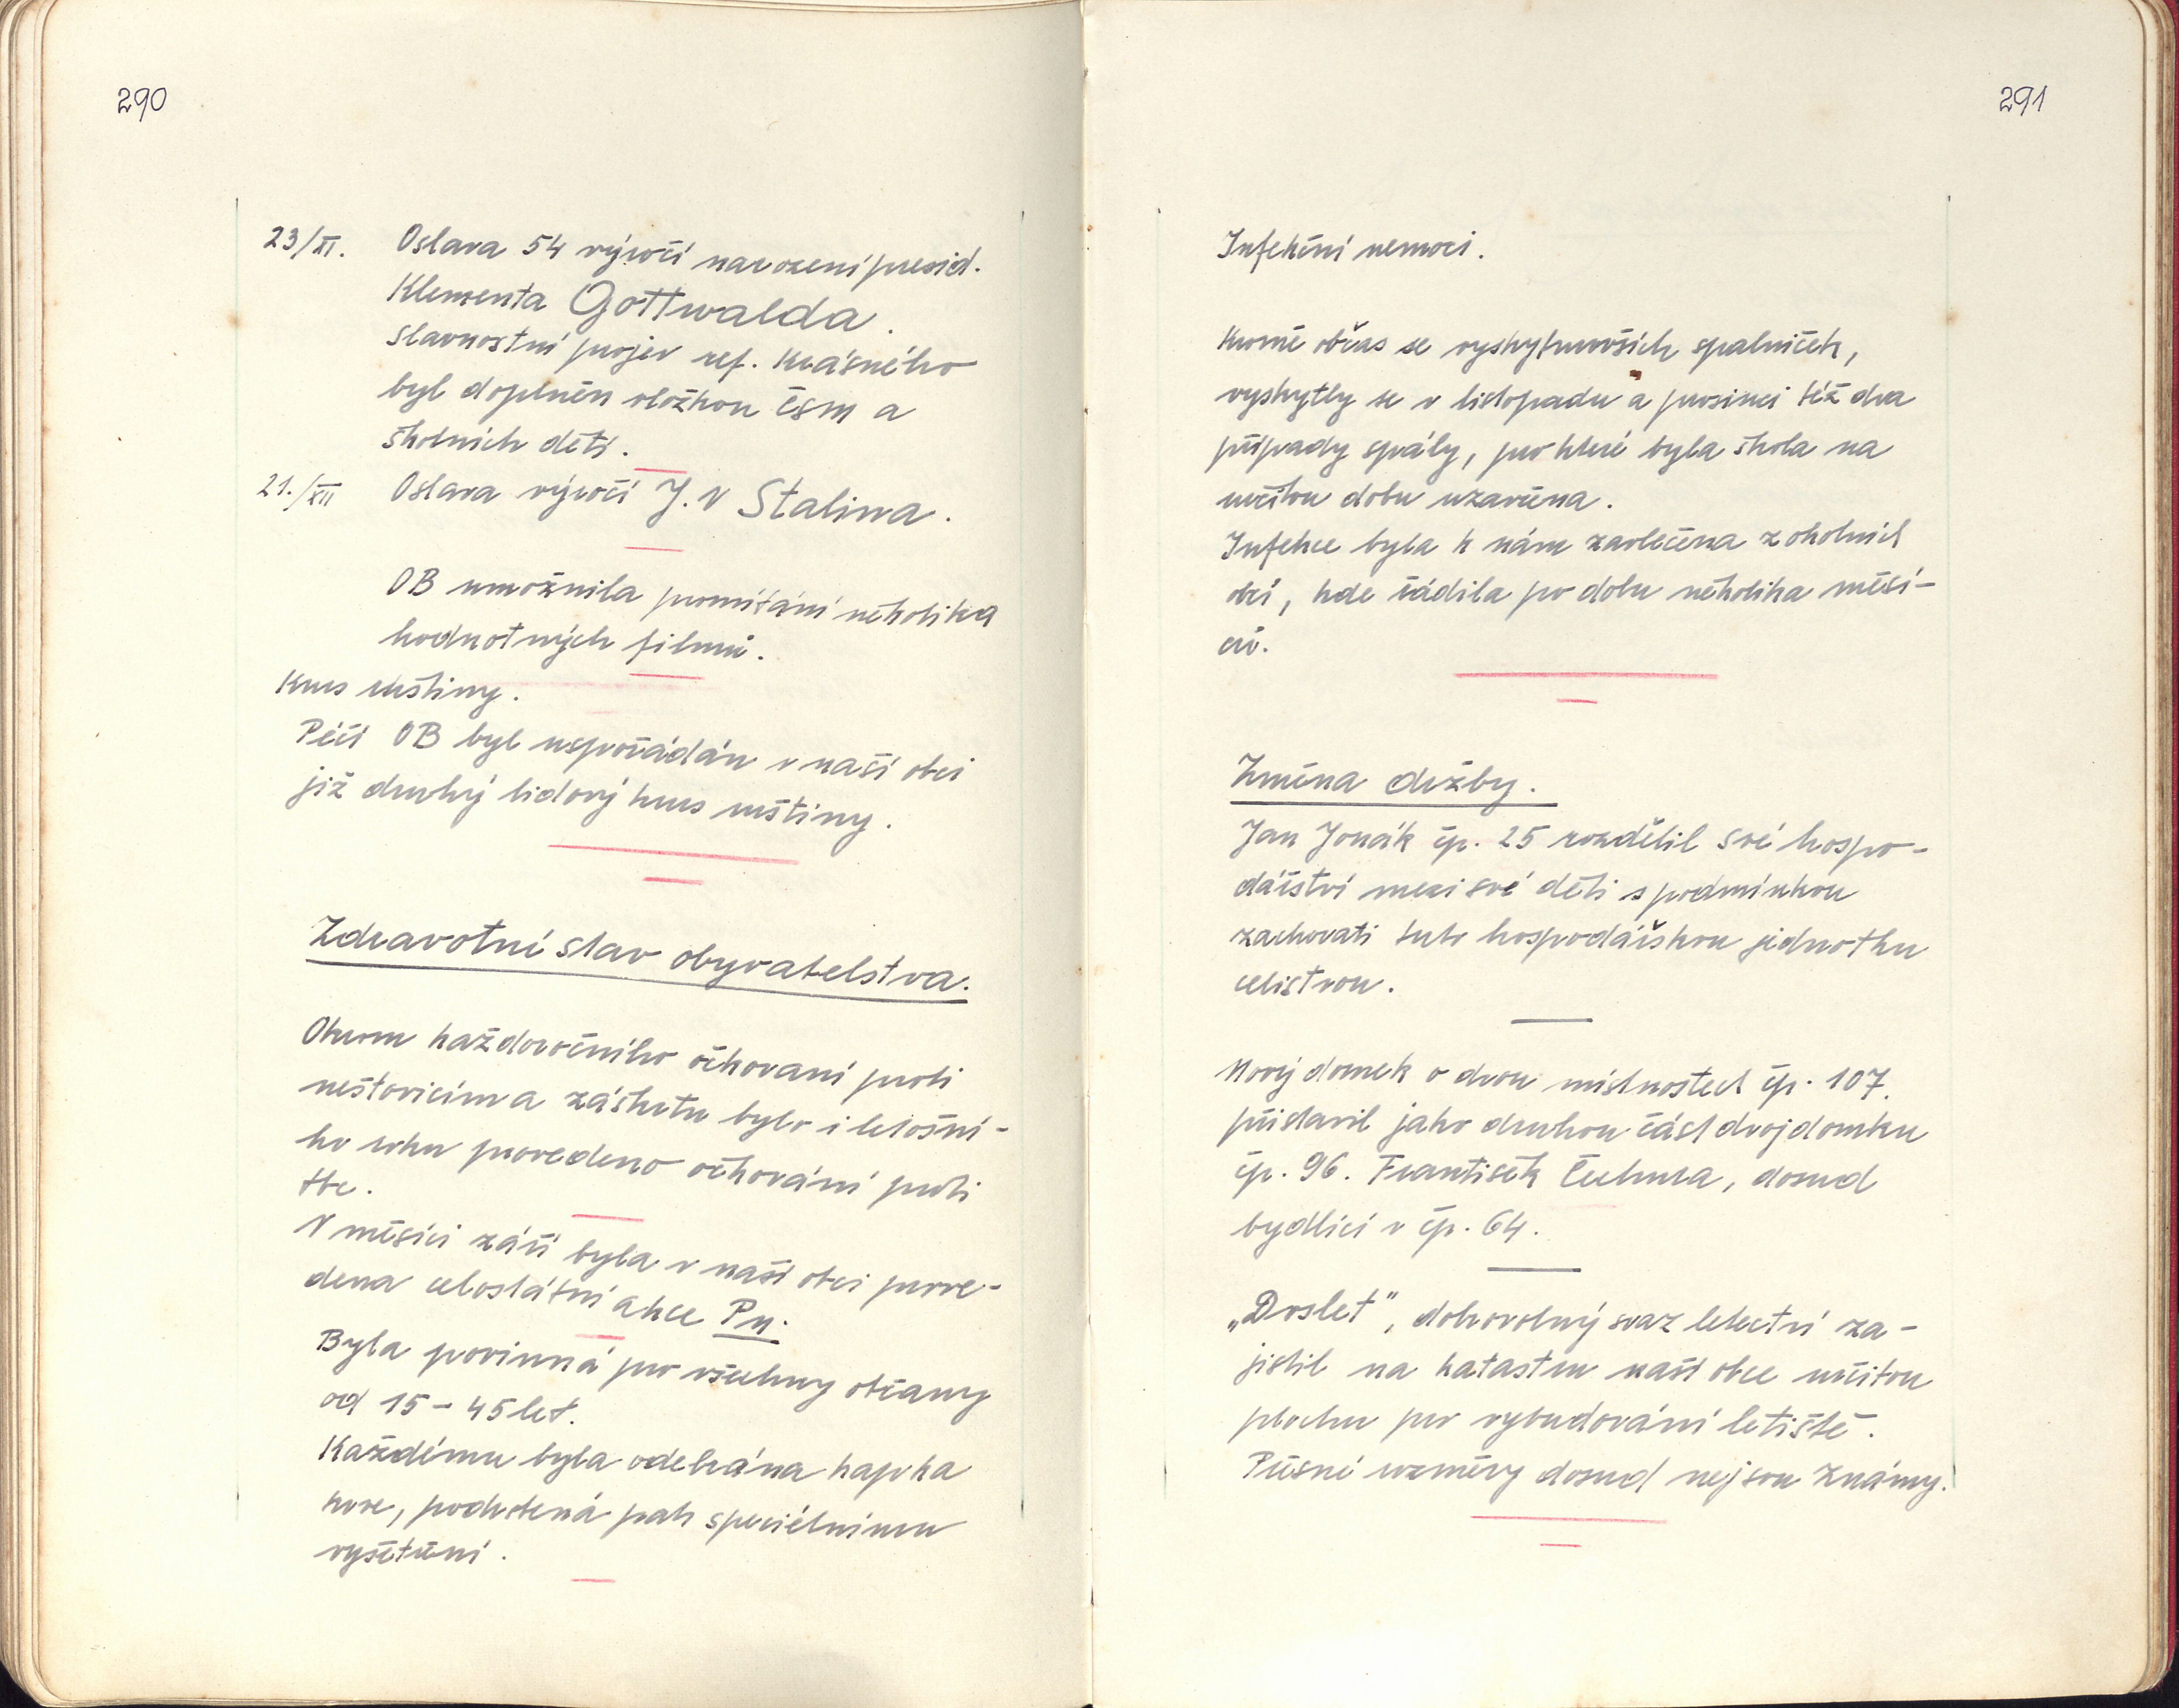 290
23/XI. Oslava 54 výročí narození presid.
Klementa Gottwalda.
Slavnostní projev ref. Krásného
byl doplněn vložkou ČSM a
školních dětí.
21./XII Oslava výročí J. V Stalina.
OB umožnila promítání několika
hodnotných filmů.
Kurs ruštiny.
Péčí OB byl uspořádán v naší obci
již druhý lidový kurs ruštiny.
Zdravotní stav obyvatelstva.
Okrom každoročního očkovaní proti
neštovicím a záškrtu bylo i letošní-
ho roku provedeno očkování proti
tbc.
V měsíci září byla v naší obci prove-
dena celostátní akce Pn.
Byla povinná pro všechny občany
od 15 - 45 let.
Každému byla odebrána kapka
krve, podrobená pak speciélnímu
vyšetření.
291
Infekční nemoci.
Kromě občas se vyskytnuvších spalniček,
vyskytly se v listopadu a prosinci též dva
případy spály, pro které byla škola na
určitou dobu uzavřena.
Infekce byla k nám zavlečena z okolních
obcí, kde řádila po dobu několika měsí-
ců.
Změna držby.
Jan Jonák čp. 25 rozdělil své hospo-
dářství mezi své děti s podmínkou
zachovati tuto hospodářskou jednotku
celistvou.
Nový domek o dvou místnostech čp. 107.
přistavil jako druhou část dvojdomku
čp. 96. František Čechura, dosud
bydlící v čp. 64.
„Doslet", dobrovolný svaz letectví za-
jistil na katastru naší obce určitou
plochu pro vybudování letiště.
Přesné rozměry dosud nejsou známy.